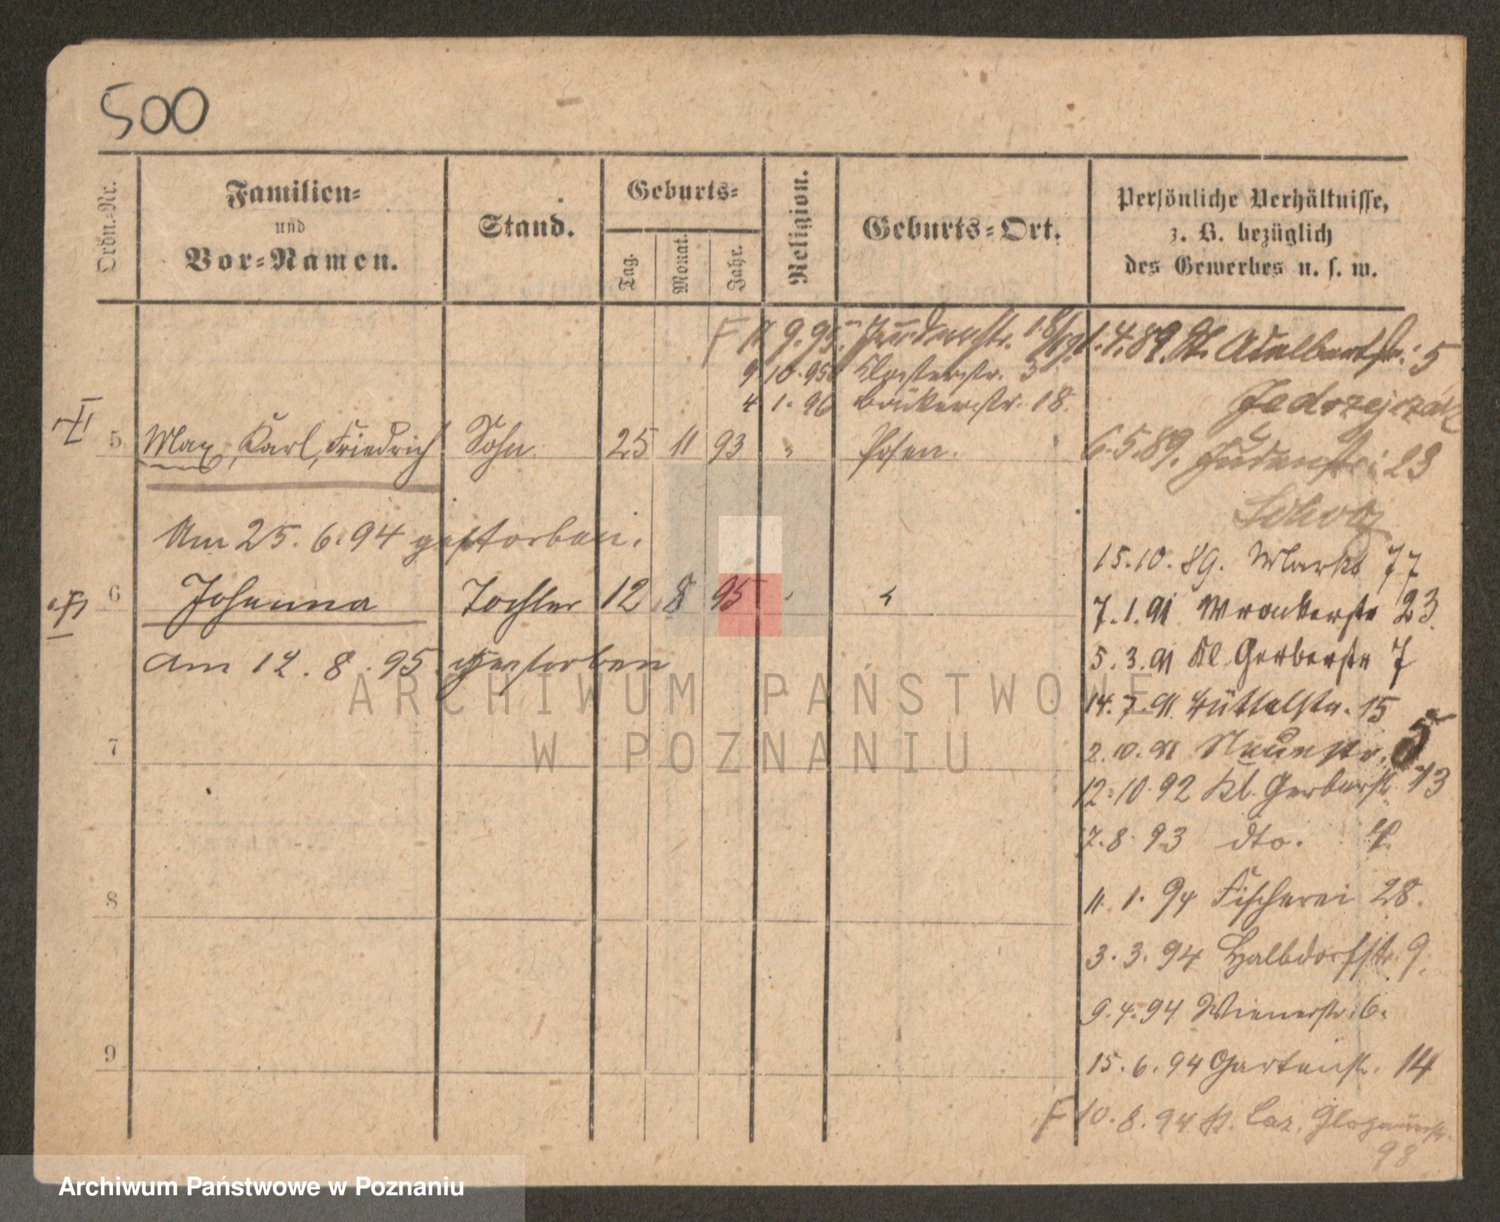 500
Ordn.-Nr.
Familien-
und
Vor-Namen.
Stand.
Geburts-
Tag.
Monat.
Jahr.
Religion.
Geburts-Ort.
Persönliche Verhältnisse,
z. B. bezüglich
des Gewerbes u. s. w.
F 11 9.95. Judenstr. 18/19
9 10.95 Klosterstr. 3
4 1.96 Brückenstr. 18.
5 Max, Karl, Friedrich Sohn. 25 11 93 " Posen.
Am 25.6.94 gestorben.
6 Johanna Tochter 12 8 95 "
am 12.8.95 gestorben
7
8
9
1.4.89. St. Adelbertstr. 5
Jedrzejczak
6.5.89. Judenstr. 23
Scholz
15.10.89. Markt 77
7.1.91 Wronkerstr 23.
5.3.91 Kl. Gerberstr 7
14.7.91 Büttelstr. 15
2.10.91 Neuestr. 5
12.10.92 Kl. Gerberstr. 13
7.8.93 dto. 4.
11.1.94 Fischerei 28.
3.3.94 Halbdorfstr. 9.
9.4.94 Wienerstr. 6.
15.6.94 Gartenstr. 14
F 10.8.94 St. Laz. Glogauerstr.
98
ARCHIWUM PAŃSTWOWE
W POZNANIU
Archiwum Państwowe w Poznaniu